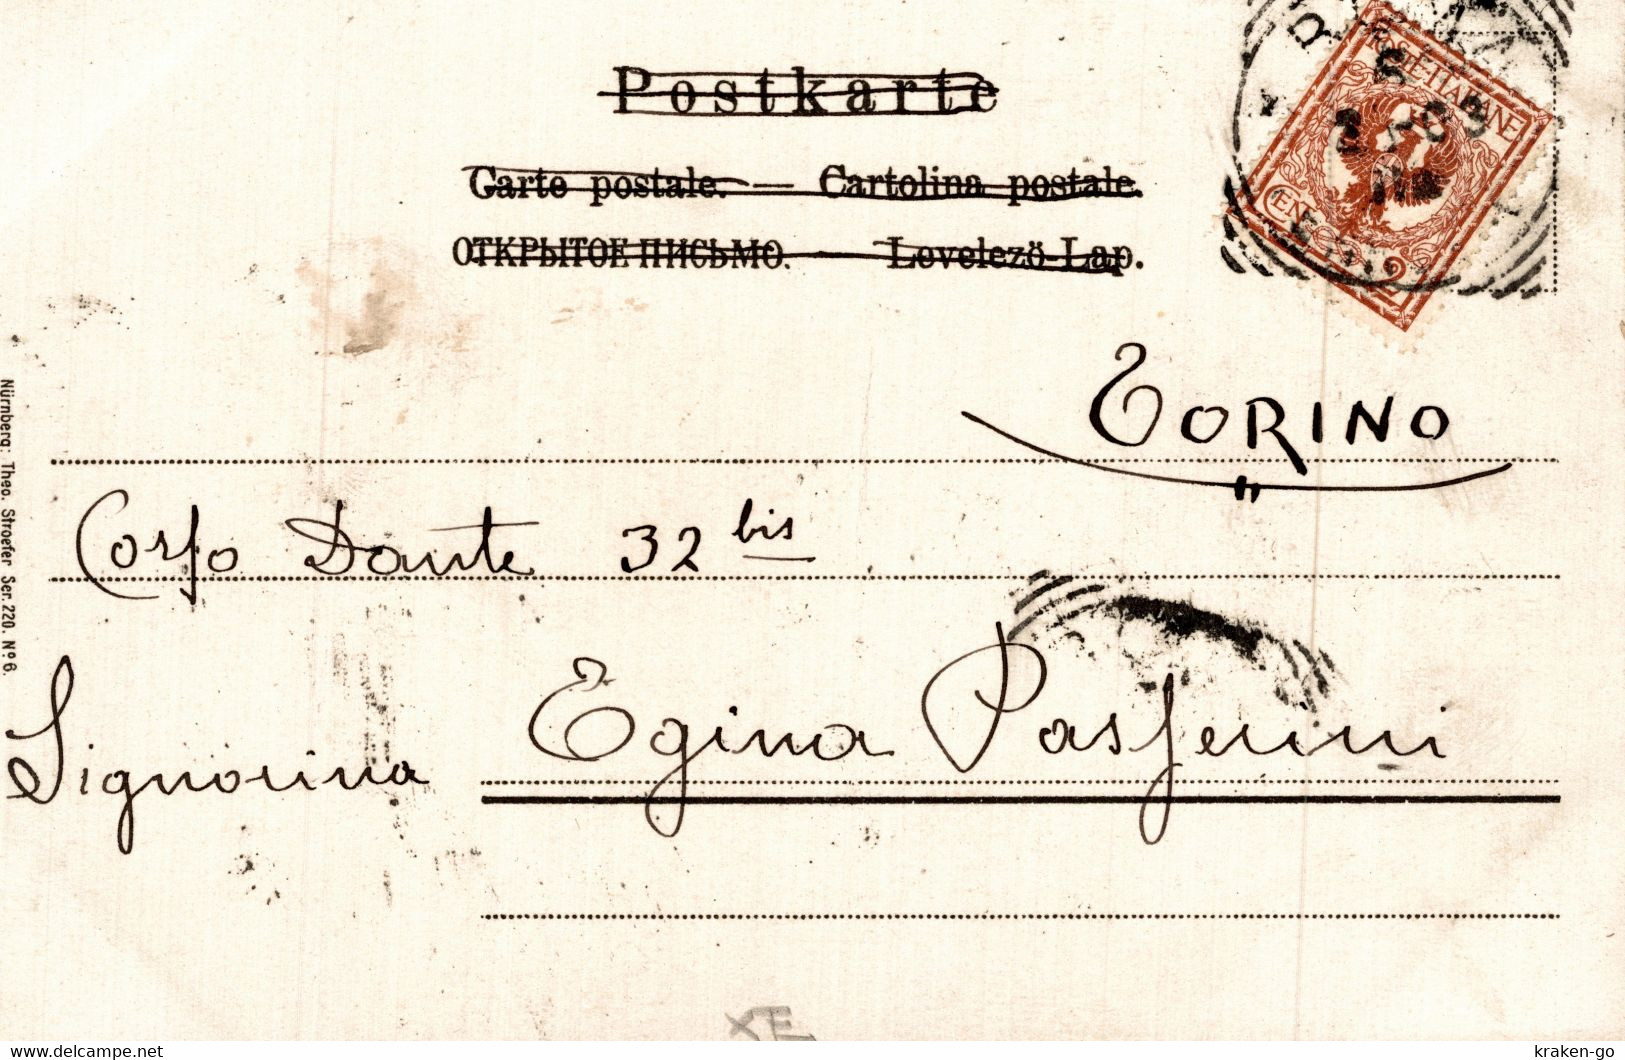 Postkarte
Carte postale. — Cartolina postale.
ОТКРЫТОЕ ПИСЬМО. — Levelező-Lap.
POSTE ITALIANE
CENT 2
TORINO
Corso Dante 32 bis
Signorina Egina Passerini
Nürnberg: Theo. Stroefer Ser. 220. Nº 6.
XE
kraken-go
www.delcampe.net